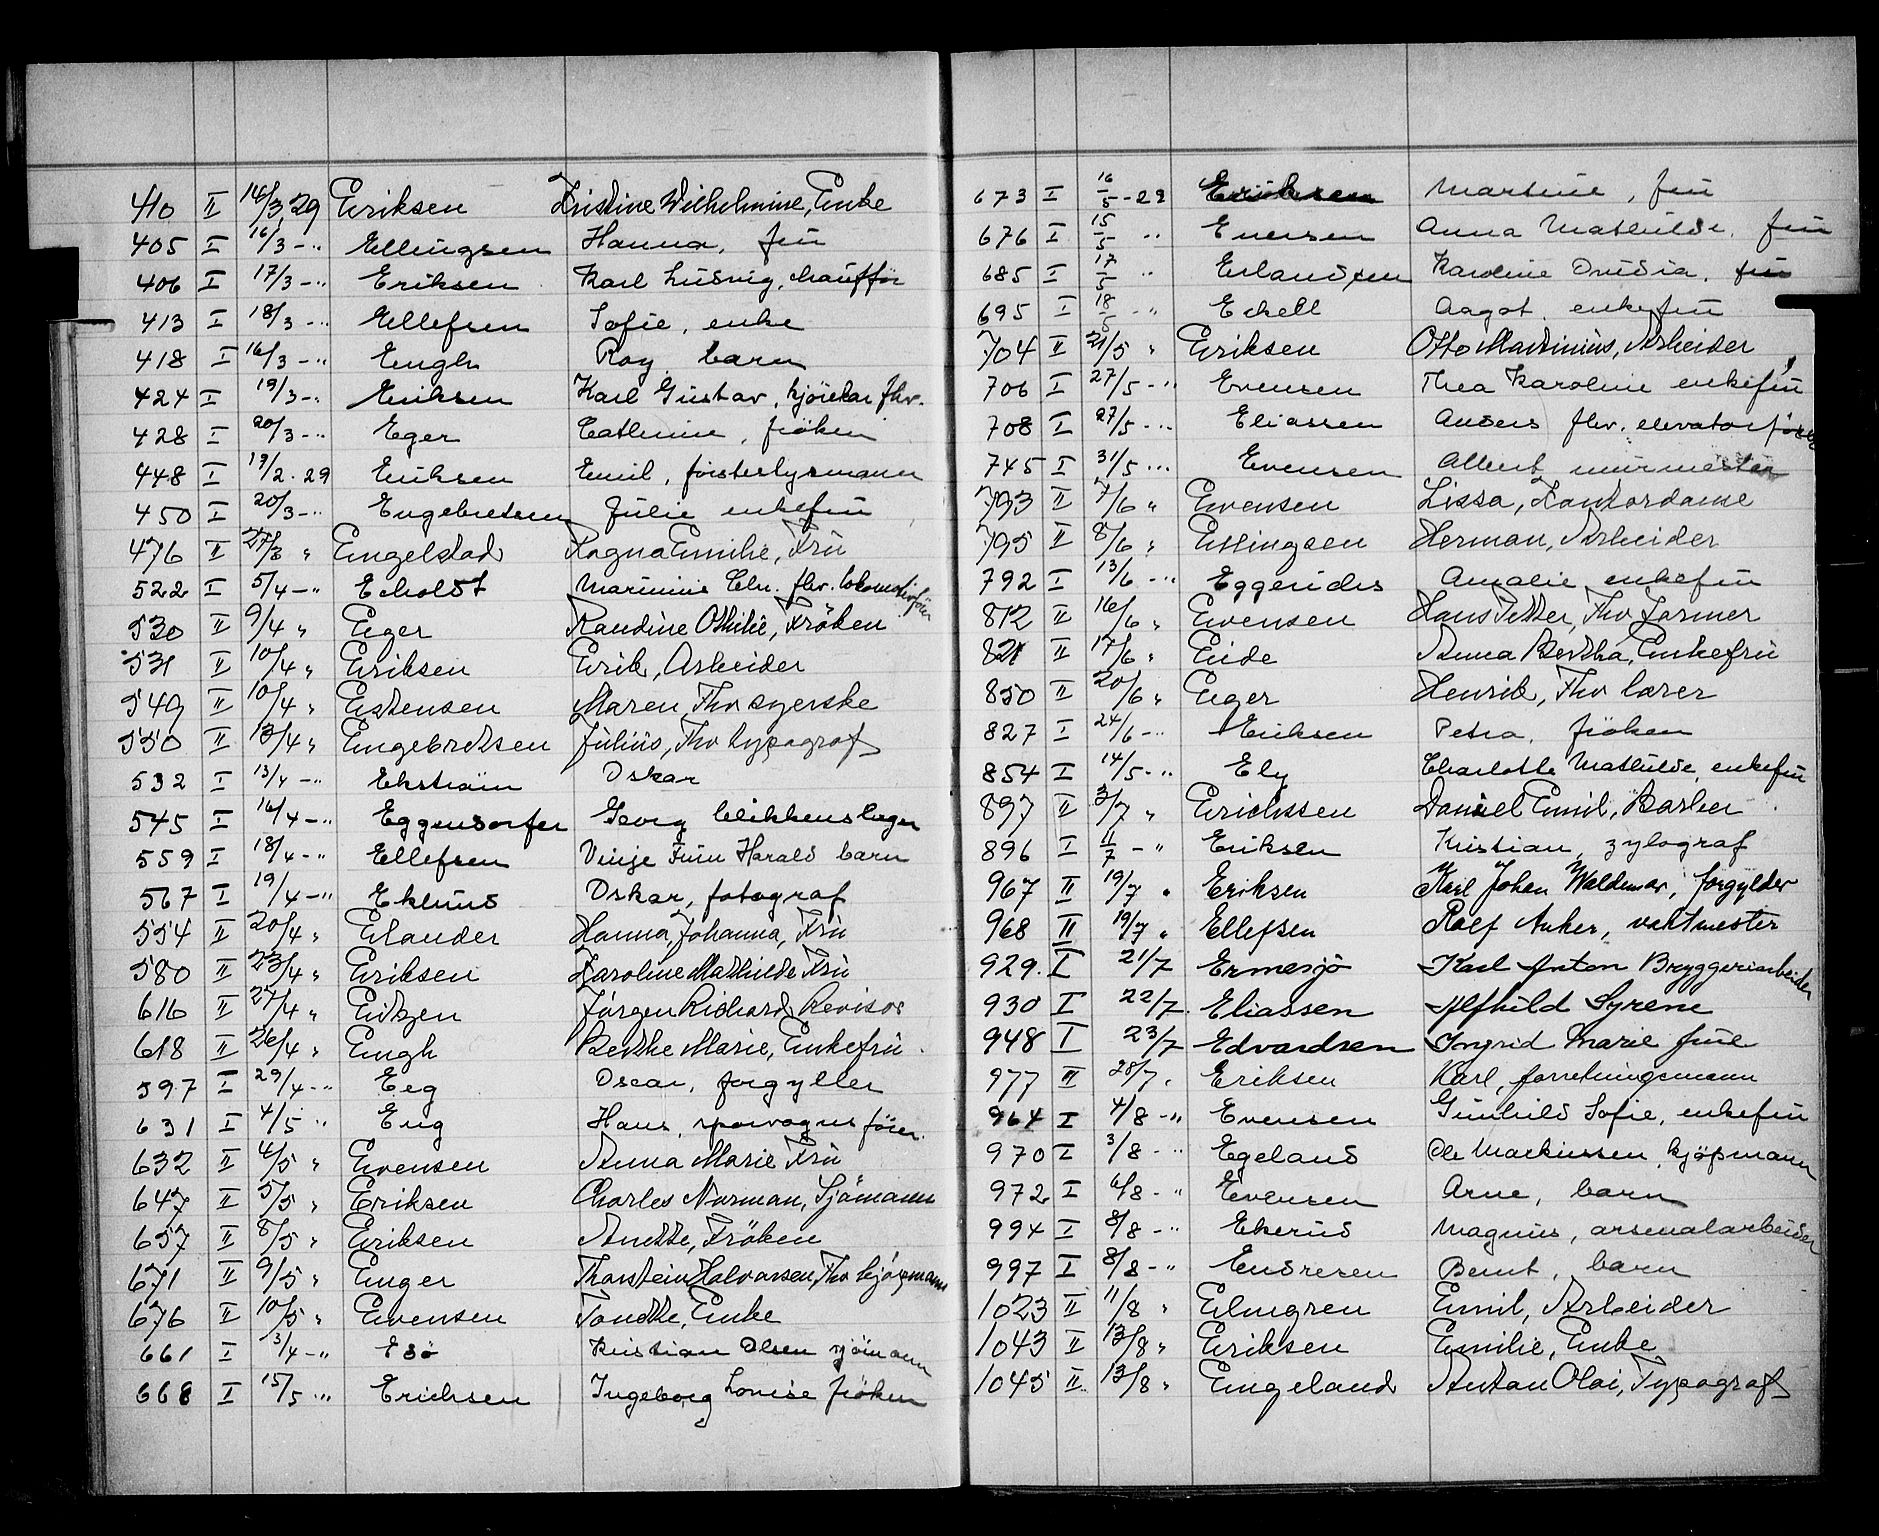 410 II 16/3 29 Eriksen Kristine Wilhelmine, Enke
405 I 16/3 -" Ellingsen Hanna, fru
406 I 17/3 -" Eriksen Karl Ludvig, chauffør
413 I 18/3 -" Ellefsen Sofie, enke
418 I 16/3 -" Engh Roy, barn
424 I 19/3 -" Eriksen Karl Gustav, kjørekar fhv.
428 I 20/3 -" Eger Cathrine, frøken
448 I 19/2 . 29 Eriksen Emil, forsterlysmann
450 I 20/3 -" Engebretsen Julie enkefru
476 II 27/3 " Engelstad Ragna Emilie, Fru
522 I 5/4 -" Echoldt Marinius Chr. fhv. lokomotivfører
530 II 9/4 " Eger Randine Othilie, Frøken
531 II 10/4 " Eriksen Erik, Arbeider
549 II 10/4 " Estensen Maren, Fhv syerske
550 II 13/4 " Engebretsen Julius, Fhv typograf
532 I 13/4 -" Ekstrøm Oskar
545 I 16/4 -" Eggendorfer Georg blikkenslager
559 I 18/4 -" Ellefsen Vinje Finn Harald barn
567 I 19/4 -" Eklund Oskar, fotograf
554 II 20/4 " Elander Hanna Johanna, Fru
580 II 23/4 " Eriksen Karoline Mathilde Fru
616 II 27/4 " Eitzen Jørgen Richard, Revisor
618 II 26/4 " Engh Berthe Marie, Enkefru
597 I 29/4 -" Eeg Oscar, forgyller
631 I 4/5 " Eng Hans, sporvognsfører
632 II 4/5 " Evensen Anna Marie Fru
647 II 5/5 " Eriksen Charles Norman, Sjømann
657 II 8/5 " Eriksen Anette, Frøken
671 II 9/5 " Enger Thorstein Halvorsen, Fhv kjøpmann
676 II 10/5 " Evensen Tonette, Enke
661 I 3/4 -" Edø Kristian Olsen sjømann
668 I 15/5 -" Erichsen Ingeborg Lovise frøken
673 I 16/5 -29 Eriksen Martine, fru
676 I 15/5 " Evensen Anna Mathilde, fru
685 I 17/5 " Erlandsen Karoline Drusia, fru
695 I 18/5 -" Echell Aagot, enkefru
704 II 21/5 " Eriksen Otto Martinius, Arbeider
706 I 27/5 -" Evensen Thea Karoline enkefru
708 I 27/5 -" Eliassen Anders fhv. elevatorfører
745 I 31/5 -" Evensen Albert murmester
793 II 7/6 " Evensen Lissa, Kontordame
795 II 8/6 " Ellingsen Herman, Arbeider
792 I 13/6 -" Eggerides Amalie enkefru
812 II 16/6 " Evensen Hans Petter, Fhv Former
821 II 17/6 " Eide Anna Bertha, Enkefru
850 II 20/6 " Eger Henrik, Fhv lærer
827 I 24/6 -" Eriksen Petra, frøken
854 I 14/5 -" Ely Charlotte Mathilde, enkefru
897 II 3/7 " Erichssen Daniel Emil, Barber
896 I 11/7 -" Eriksen Kristian, zylograf
967 II 19/7 " Eriksen Karl Johan Waldemar, forgylder
968 II 19/7 " Ellefsen Rolf Anker, vaktmester
929. I 21/7 Ermesjø Karl Anton Bryggeriarbeider
930 I 22/7. Eliassen Alfhild Syrene
948 I 23/7 Edvardsen Ingrid Marie frue
977 II 28/7. Eriksen Karl, forretningsmann
964 I 4/8 -" Evensen Gunhild Sofie, enkefru
970 I 3/8 -" Egeland Ole Markussen, kjøpmann
972 I 6/8 -" Evensen Arne, barn
994 I 8/8 -" Ekerud Magnus, arsenalarbeider
997 I 8/8 -" Endresen Bernt, barn
1023 II 11/8 " Elmgren Emil, Arbeider
1043 II 13/8 " Eriksen Emilie, Enke
1045 II 13/8 " Engeland Anton Olai, Typograf